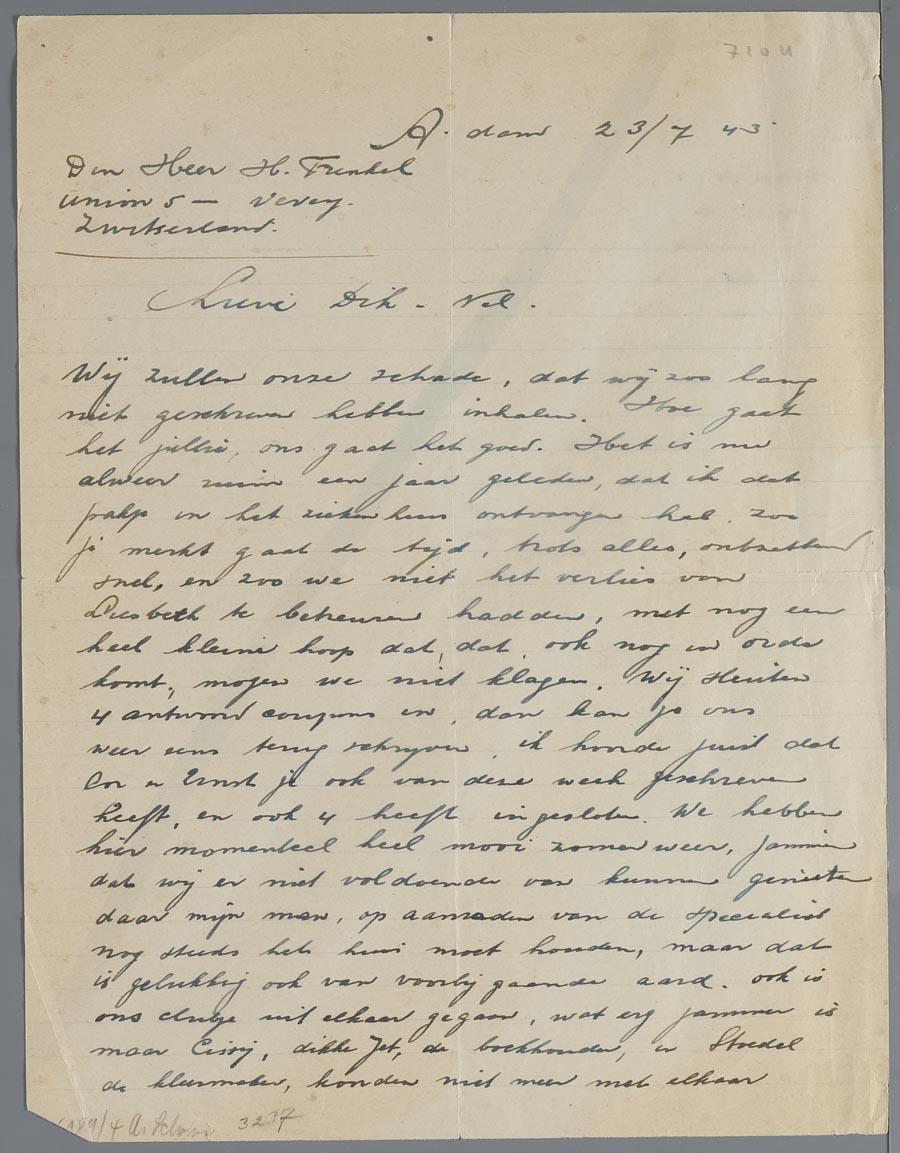 7104
A. dam 23/7 43
Den Heer H. Frenkel
Union 5 — Vevey.
Zwitserland.
Lieve Dik - Nel.
Wij zullen onze schade, dat wij zoo lang
niet geschreven hebben inhalen. Hoe gaat
het jullie, ons gaat het goed. Het is nu
alweer ruim een jaar geleden, dat ik dat
pakje in het ziekenhuis ontvangen heb. Zoo
je merkt gaat de tijd, trots alles, ontzettend
snel, en zoo we niet het verlies van
Liesbeth te betreuren hadden, met nog een
heel kleine hoop dat, dat ook nog in orde
komt, mogen we niet klagen. Wij sluiten
4 antwoord coupons in, dan kan je ons
weer eens terug schrijven, ik hoorde juist dat
Cor en Ernst je ook van deze week geschreven
heeft, en ook 4 heeft ingesloten. We hebben
hier momenteel heel mooi zomerweer, jammer
dat wij er niet voldoende van kunnen genieten
daar mijn man, op aanraden van de specialist
nog steeds het huis moet houden, maar dat
is gelukkig ook van voorbijgaande aard. ook is
ons clubje uit elkaar gegaan, wat erg jammer is
maar Cissy, dikke Jet, de boekhouder, en Stoedel
de kleermaker, konden niet meer met elkaar
3237